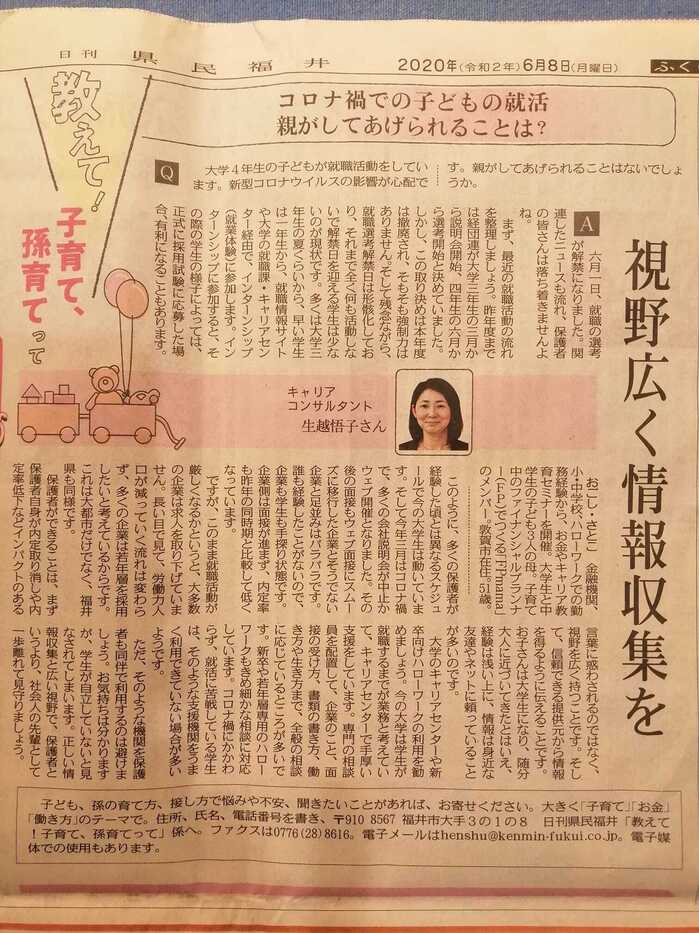 日刊 県民福井 2020年(令和2年)6月8日(月曜日) ふく
教えて!
子育て、
孫育てって
コロナ禍での子どもの就活
親がしてあげられることは?
Q 大学4年生の子どもが就職活動をしてい
ます。新型コロナウイルスの影響が心配で
す。親がしてあげられることはないでしょ
うか。
視野広く情報収集を
A 六月一日、就職の選考
が解禁になりました。関
連したニュースも流れ、保護者
の皆さんは落ち着きませんよ
ね。
まず、最近の就職活動の流れ
を整理しましょう。昨年度まで
は経団連が大学三年生の三月か
ら説明会開始、四年生の六月か
ら選考開始と決めていました。
しかし、この取り決めは本年度
は撤廃され、そもそも強制力は
ありません。そして残念ながら、
就職選考解禁日は形骸化してお
り、それまで全く何も活動しな
いで解禁日を迎える学生は少な
いのが現状です。多くは大学三
年生の夏くらいから、早い学生
は一年生から、就職情報サイト
や大学の就職課・キャリアセン
ター経由で、インターンシップ
(就業体験)に参加します。イン
ターンシップに参加すると、そ
の際の学生の様子によっては、
正式に採用試験に応募した場
合、有利になることもあります。
キャリア
コンサルタント
生越悟子さん
おごし・さとこ 金融機関、
小・中学校、ハローワークでの勤
務経験から、お金やキャリア教
育セミナーを開催。大学生と中
学生の子ども3人の母。子育て
中のファイナンシャルプランナ
ー(FP)でつくる「FPmama」
のメンバー。敦賀市在住。51歳。
このように、多くの保護者が
経験した頃とは異なるスケジュ
ールで今の大学生は動いていま
す。そして今年三月はコロナ禍
で、多くの会社説明会が中止か
ウェブ開催となりました。その
後の面接もウェブ面接にスムー
ズに移行した企業とそうでない
企業と足並みはバラバラです。
誰も経験したことがないので、
企業も学生も手探り状態です。
企業側は面接が進まず、内定率
も昨年の同時期と比較して低く
なっています。
ですが、このまま就職活動が
厳しくなるかというと、大多数
の企業は求人を取り下げていま
せん。長い目で見て、労働力人
口が減っていく流れは変わら
ず、多くの企業は若年層を採用
したいと考えているからです。
これは大都市だけでなく、福井
県も同様です。
保護者ができることは、まず
保護者自身が内定取り消しや内
定率低下などインパクトのある
言葉に惑わされるのではなく、
視野を広く持つことです。そし
て、信頼できる提供元から情報
を得るように伝えることです。
お子さんは大学生になり、随分
大人に近づいてきたとはいえ、
経験は浅い上に、情報は身近な
友達やネットに頼っていること
が多いのです。
大学のキャリアセンターや新
卒向けハローワークの利用を勧
めましょう。今の大学は学生が
就職するまでが業務と考えてい
て、キャリアセンターで手厚い
支援をしています。専門の相談
員を配置して、企業のこと、面
接の受け方、書類の書き方、働
き方や生き方まで、全般の相談
に応じているところが多いで
す。新卒や若年層専用のハロー
ワークもきめ細かな相談に対応
しています。コロナ禍にかかわ
らず、就活に苦戦している学生
は、そのような支援機関をうま
く利用できていない場合が多い
ようです。
ただ、そのような機関を保護
者も同伴で利用するのは避けま
しょう。お気持ちは分かります
が、学生が自立していないと見
なされてしまいます。正しい情
報収集と広い視野で、保護者と
いうより、社会人の先輩として
一歩離れて見守りましょう。
子ども、孫の育て方、接し方で悩みや不安、聞きたいことがあれば、お寄せください。大きく「子育て」「お金」
「働き方」のテーマで。住所、氏名、電話番号を書き、〒910 8567 福井市大手3の1の8 日刊県民福井「教えて
!子育て、孫育てって」係へ。ファクスは0776(28)8616。電子メールはhenshu@kenmin-fukui.co.jp。電子媒
体での使用もあります。